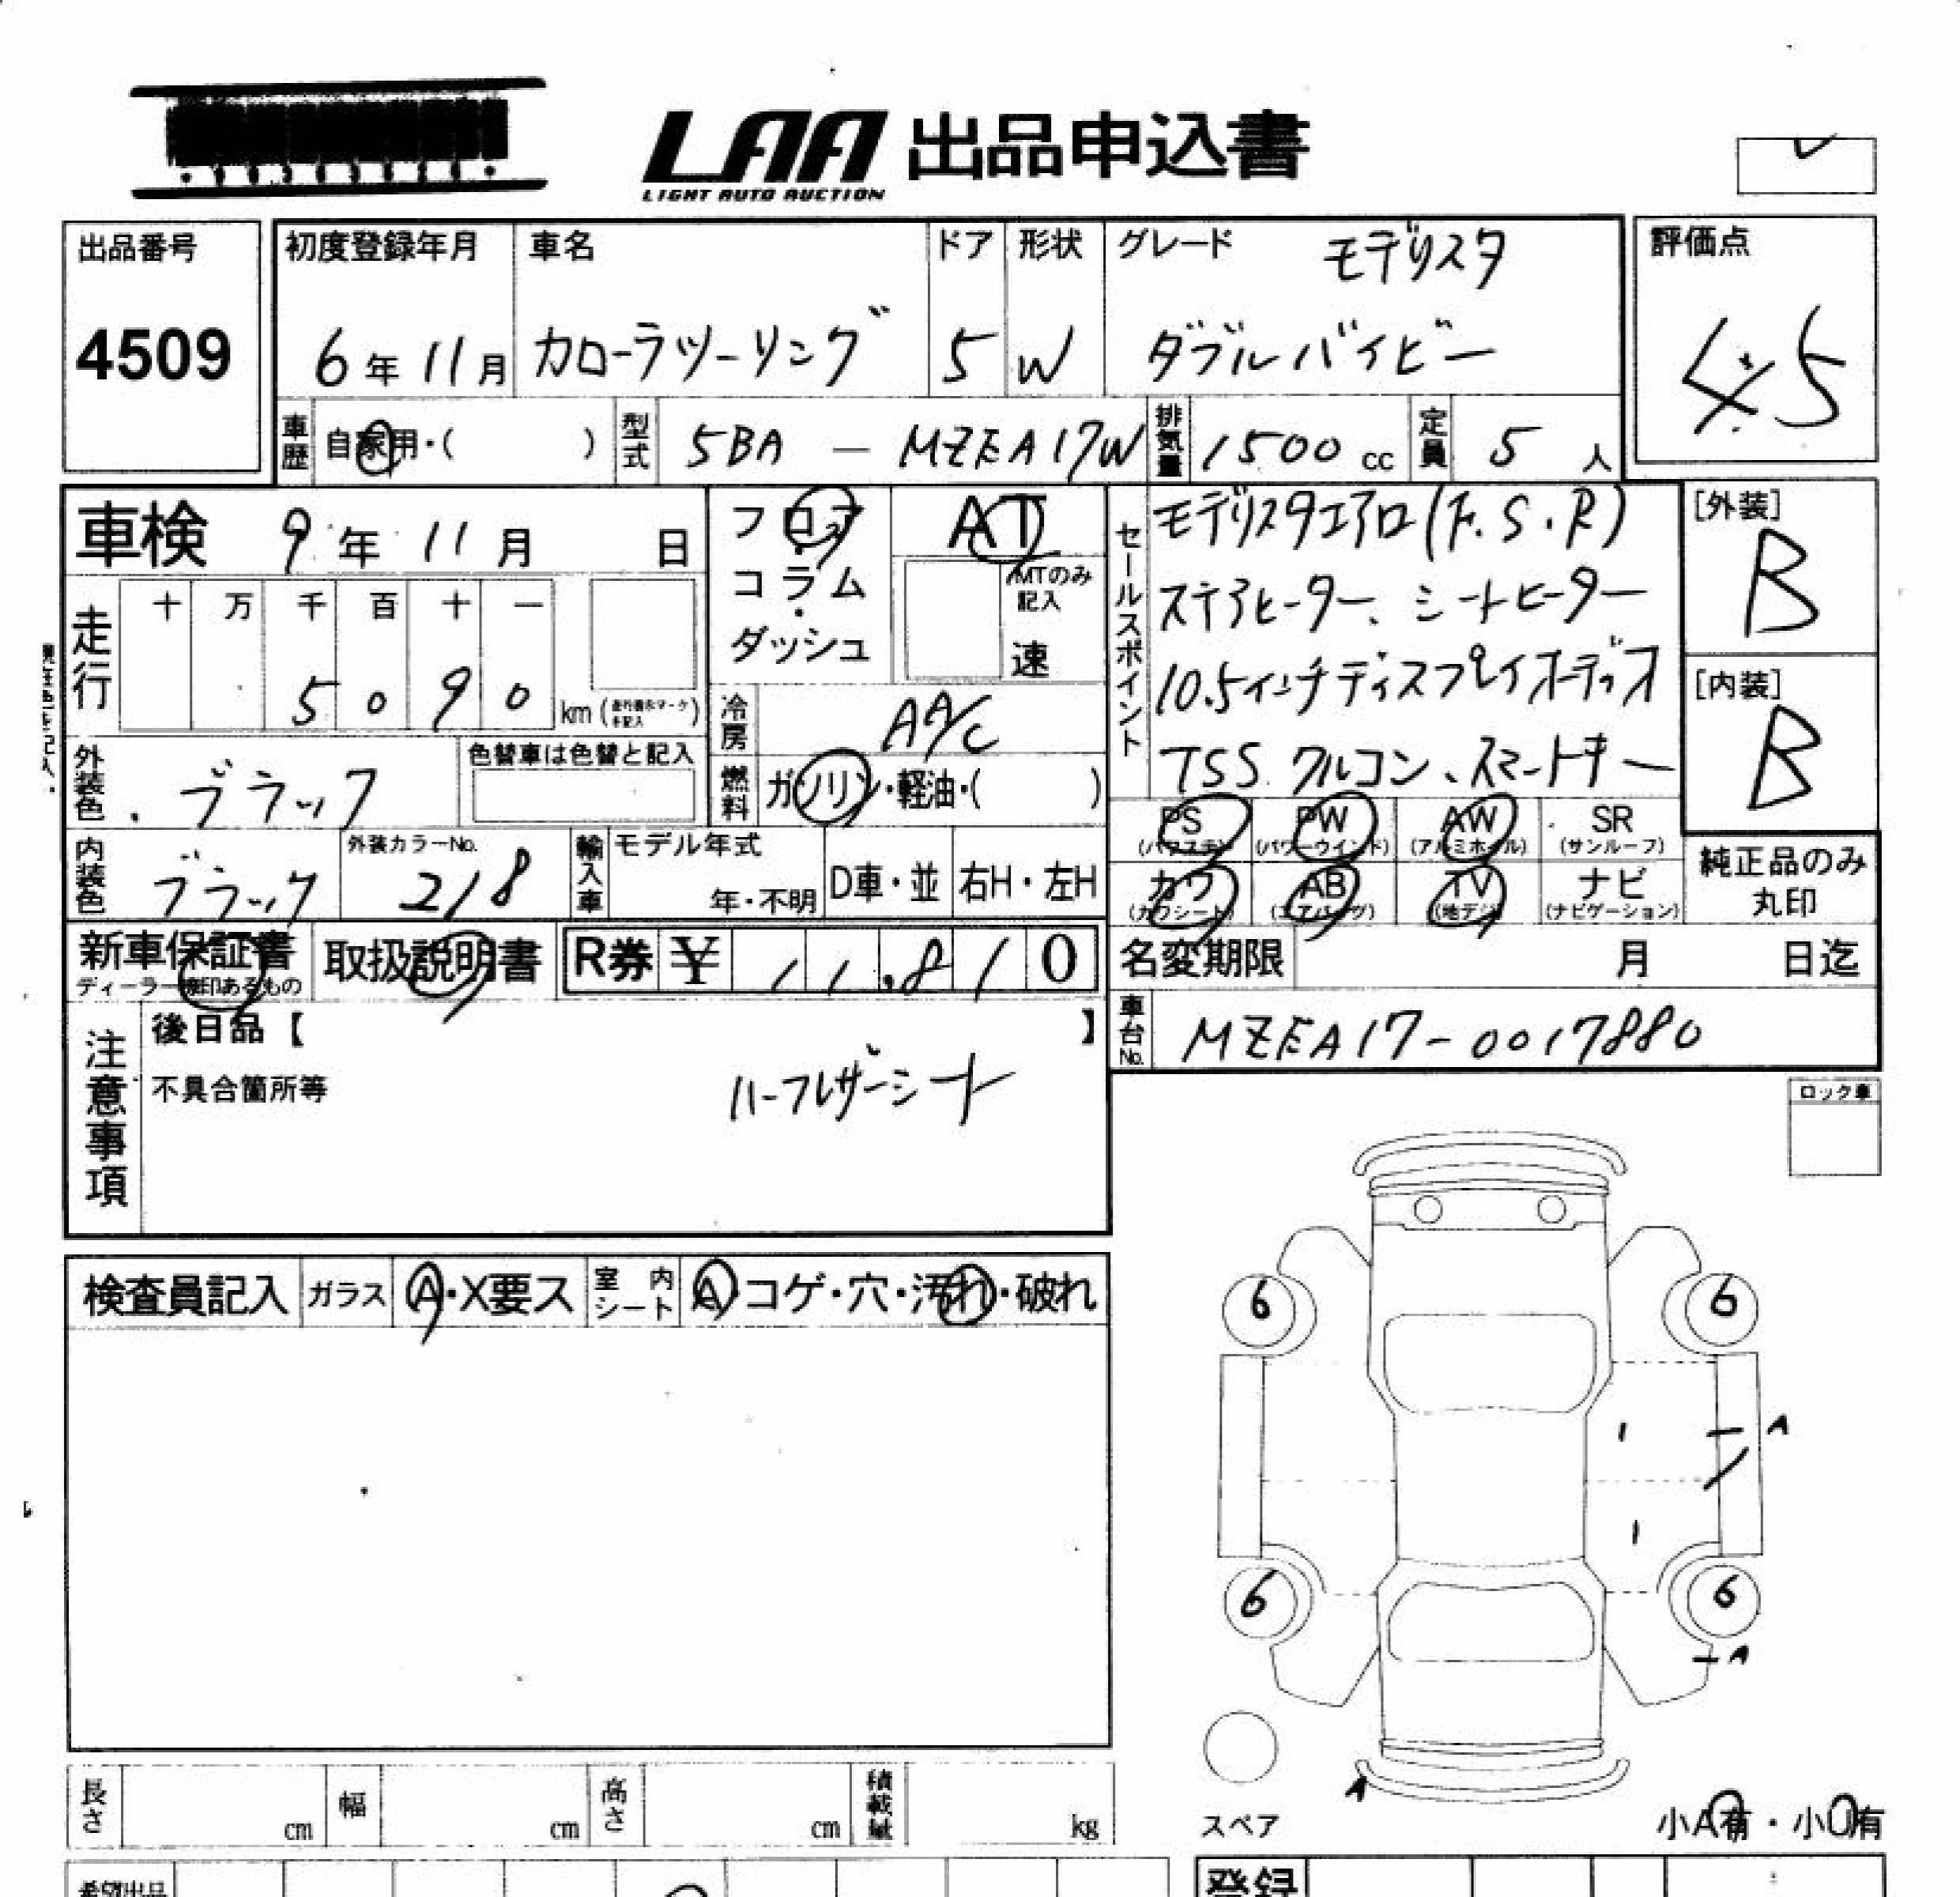 LAA 出品申込書
LIGHT AUTO AUCTION
出品番号
4509
初度登録年月
6年11月
車名
カローラツーリング
ドア
5
形状
W
グレード
モデリスタ
ダブルバイビー
評価点
4.5
車歴
自家用・( )
型式
5BA — MZEA17W
排気量
1500cc
定員
5人
車検 9年11月 日
フロア・コラム・ダッシュ
AT
MTのみ記入
速
走行
十 万 千 百 十 一
5 0 9 0 km
冷房
AA/C
燃料
ガソリン・軽油・( )
外装色
ブラック
色替車は色替と記入
内装色
ブラック
外装カラーNo.
218
輸入車
モデル年式
年・不明
D車・並
右H・左H
セールスポイント
モデリスタエアロ(F.S.R)
ステアヒーター、シートヒーター
10.5インチディスプレイオーディオ
TSS クルコン、スマートキー
[外装]
B
[内装]
B
PS (パワステ)
PW (パワーウインド)
AW (アルミホイル)
SR (サンルーフ)
カワ (カワシート)
AB (エアバッグ)
TV (地デジ)
ナビ (ナビゲーション)
純正品のみ丸印
新車保証書
ディーラー検印あるもの
取扱説明書
R券 ¥ 11.810
名変期限 月 日迄
車台No.
MZEA17-0017880
注意事項
後日品【 】
不具合箇所等
ハーフレザーシート
ロック車
検査員記入
ガラス
A・X要ス
室内シート
A・コゲ・穴・汚れ・破れ
6 6
A
6 6
A
A
スペア
小A有・小U有
長さ cm
幅 cm
高さ cm
積載量 kg
希望出品
登録